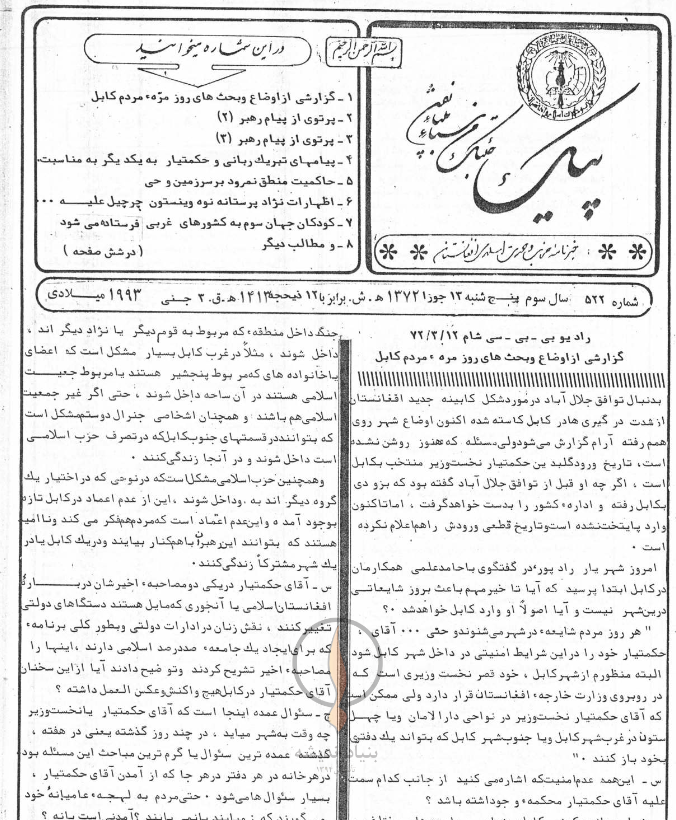 بسم الله الرحمن الرحیم
پیک
خبرنامه حزب وحدت اسلامی افغانستان
در این شماره میخوانید
۱ ـ گزارشی ازاوضاع وبحث های روز مرّهٔ مردم کابل
۲ ـ پرتوی از پیام رهبر (۲)
۳ ـ پرتوی از پیام رهبر (۳)
۴ ـ پیامهای تبریك ربانی و حکمتیار به یکدیگر به مناسبت
۵ ـ حاکمیت منطق نمرود بر سرزمین و حی
۶ ـ اظهارات نژاد پرستانه نوه وینستون چرچیل علیــه ...
۷ ـ کودکان جهان سوم به کشورهای غربی فرستاده می شود
۸ ـ و مطالب دیگر ( درشش صفحه )
شماره ۵۲۲ سال سوم پنــج شنبه ۱۳ جوزا ۱۳۷۲ ه‍ـ.ش. برابز با ۱۲ ذیحجه ۱۴۱۳ ه‍ـ.ق. ۳ جنی ۱۹۹۳ میــلادی
رادیو بی ـ بی ـ سی شام ۷۲/۳/۱۲
گزارشی ازاوضاع وبحث های روز مره ٔ مردم کابل
بدنبال توافق جلال آباد درموردشکل کابینه جدید افغانستان
ازشدت در گیری هادر کابل کاسته شده اکنون اوضاع شهر روی
همرفته آرام گزارش می‌شودولی‌مسئله که‌هنوز روشن نشده
است، تاریخ ورودگلبد ین حکمتیار نخست‌وزیر منتخب بکابل
است ، اگر چه او قبل از توافق جلال آباد گفته بود که بزو دی
بکابل رفته و اداره ٔ کشور را بدست خواهدگرفت ، اماتاکنون
وارد پایتخت‌نشده است‌وتاریخ قطعی ورودش راهم‌اعلام نکرده
است .
امروز شهر یار راد پور ٔدر گفتگوی باحامدعلمی همکارمان
درکابل ابتدا پرسید که آیا تا خیرمهم باعث بروز شایعاتی
درین‌شهر نیست و آیا اصولاً او وارد کابل خواهدشد .؟
" هر روز مردم شایعه ٔ درشهر می‌شنوندو حقی ... آقای ،
حکمتیار خود را دراین شرایط امنیتی در داخل شهر کابل شود
البته منظورم ازشهرکابل ، خود قصر نخست وزیری است کـه
در روبروی وزارت خارجه ٔ افغانستان قرار دارد ولی ممکن است
که آقای حکمتیار نخست‌وزیر در نواحی دارا لامان ویا چهـل
ستون درغرب‌شهرکابل ویا جنوب‌شهر کابل که بتواند یك دفتری
بخود باز کنند ."
س ـ این‌همه عدم‌امنیت‌که اشاره‌می کنید از جانب کدام سمت
علیه آقای حکمتیار محکمه ٔ و جوداشته باشد ؟
جنگ داخل منطقه ٔ که مربوط به قوم‌دیگر یا نژاد دیگر اند ،
داخل شوند ، مثلاً درغرب کابل بسیار مشکل است که اعضای
یاخانواده های که‌مر بوط پنجشیر هستند یامربوط جمعیـت
اسلامی هستند در آن ساحه داخل شوند ، حتی اگر غیر جمعیت
اسلامی‌هم باشند و همچنان اشخاصی جنرال دوستم‌مشکل است
که بتواننددرقسمتهای جنوب‌کابل‌که درتصرف حزب اسلامـی
است داخل شوند و در آنجا زندگی‌کنند .
وهمچنین حزب‌اسلامی‌مشکل‌است‌که درنوحی که دراختیار یك
گروه دیگر اند به ٔوداخل شوند ،این از عدم اعماد درکابل تازه
بوجود آمد ه واین‌عدم اعتماد است که‌مردم‌هم‌فکر می کند ونا‌امید
هستند که بتوانند این رهبران باهم‌کنار بیایند ودریك کابل یادر
یك شهرمشترکاً زندگی‌کنند.
س ـ آقای حکمتیار دریکی دومصاحبه ٔ اخیرشان دربــارهٔ
افغانستان‌اسلامی یا آنجوری که‌مایل هستند دستگاهای دولتی
تغییر‌کنند ، نقش زنان در‌ادارات دولتی وبطور کلی برنامه ٔ
که برای‌ایجاد یك جامعه ٔ صددرصد اسلامی دارند ،اینها را
مصاحبه ٔ اخیر تشریح کردند وتو ضیح دادند آیا ازاین سخنان
آقای حکمتیار درکابل‌هیچ واکنش‌وعکس العمل داشته ؟
ج ـ سئوال عمده اینجا است که آقای حکمتیار یانخست‌وزیر
چه وقت به‌شهر میاید ، در چند روز گذشته یعنی در هفته ،
گذشته عمده ترین سئوال یا گرم ترین مباحث این مسئله بود
درهرخانه در هر دفتر درهر جا که از آمدن آقای حکمتیار ،
بسیار سئوال هامی‌شود . حتی‌مردم به لهجه ٔ عامیانه ٔخود
بنیاد اندیشه